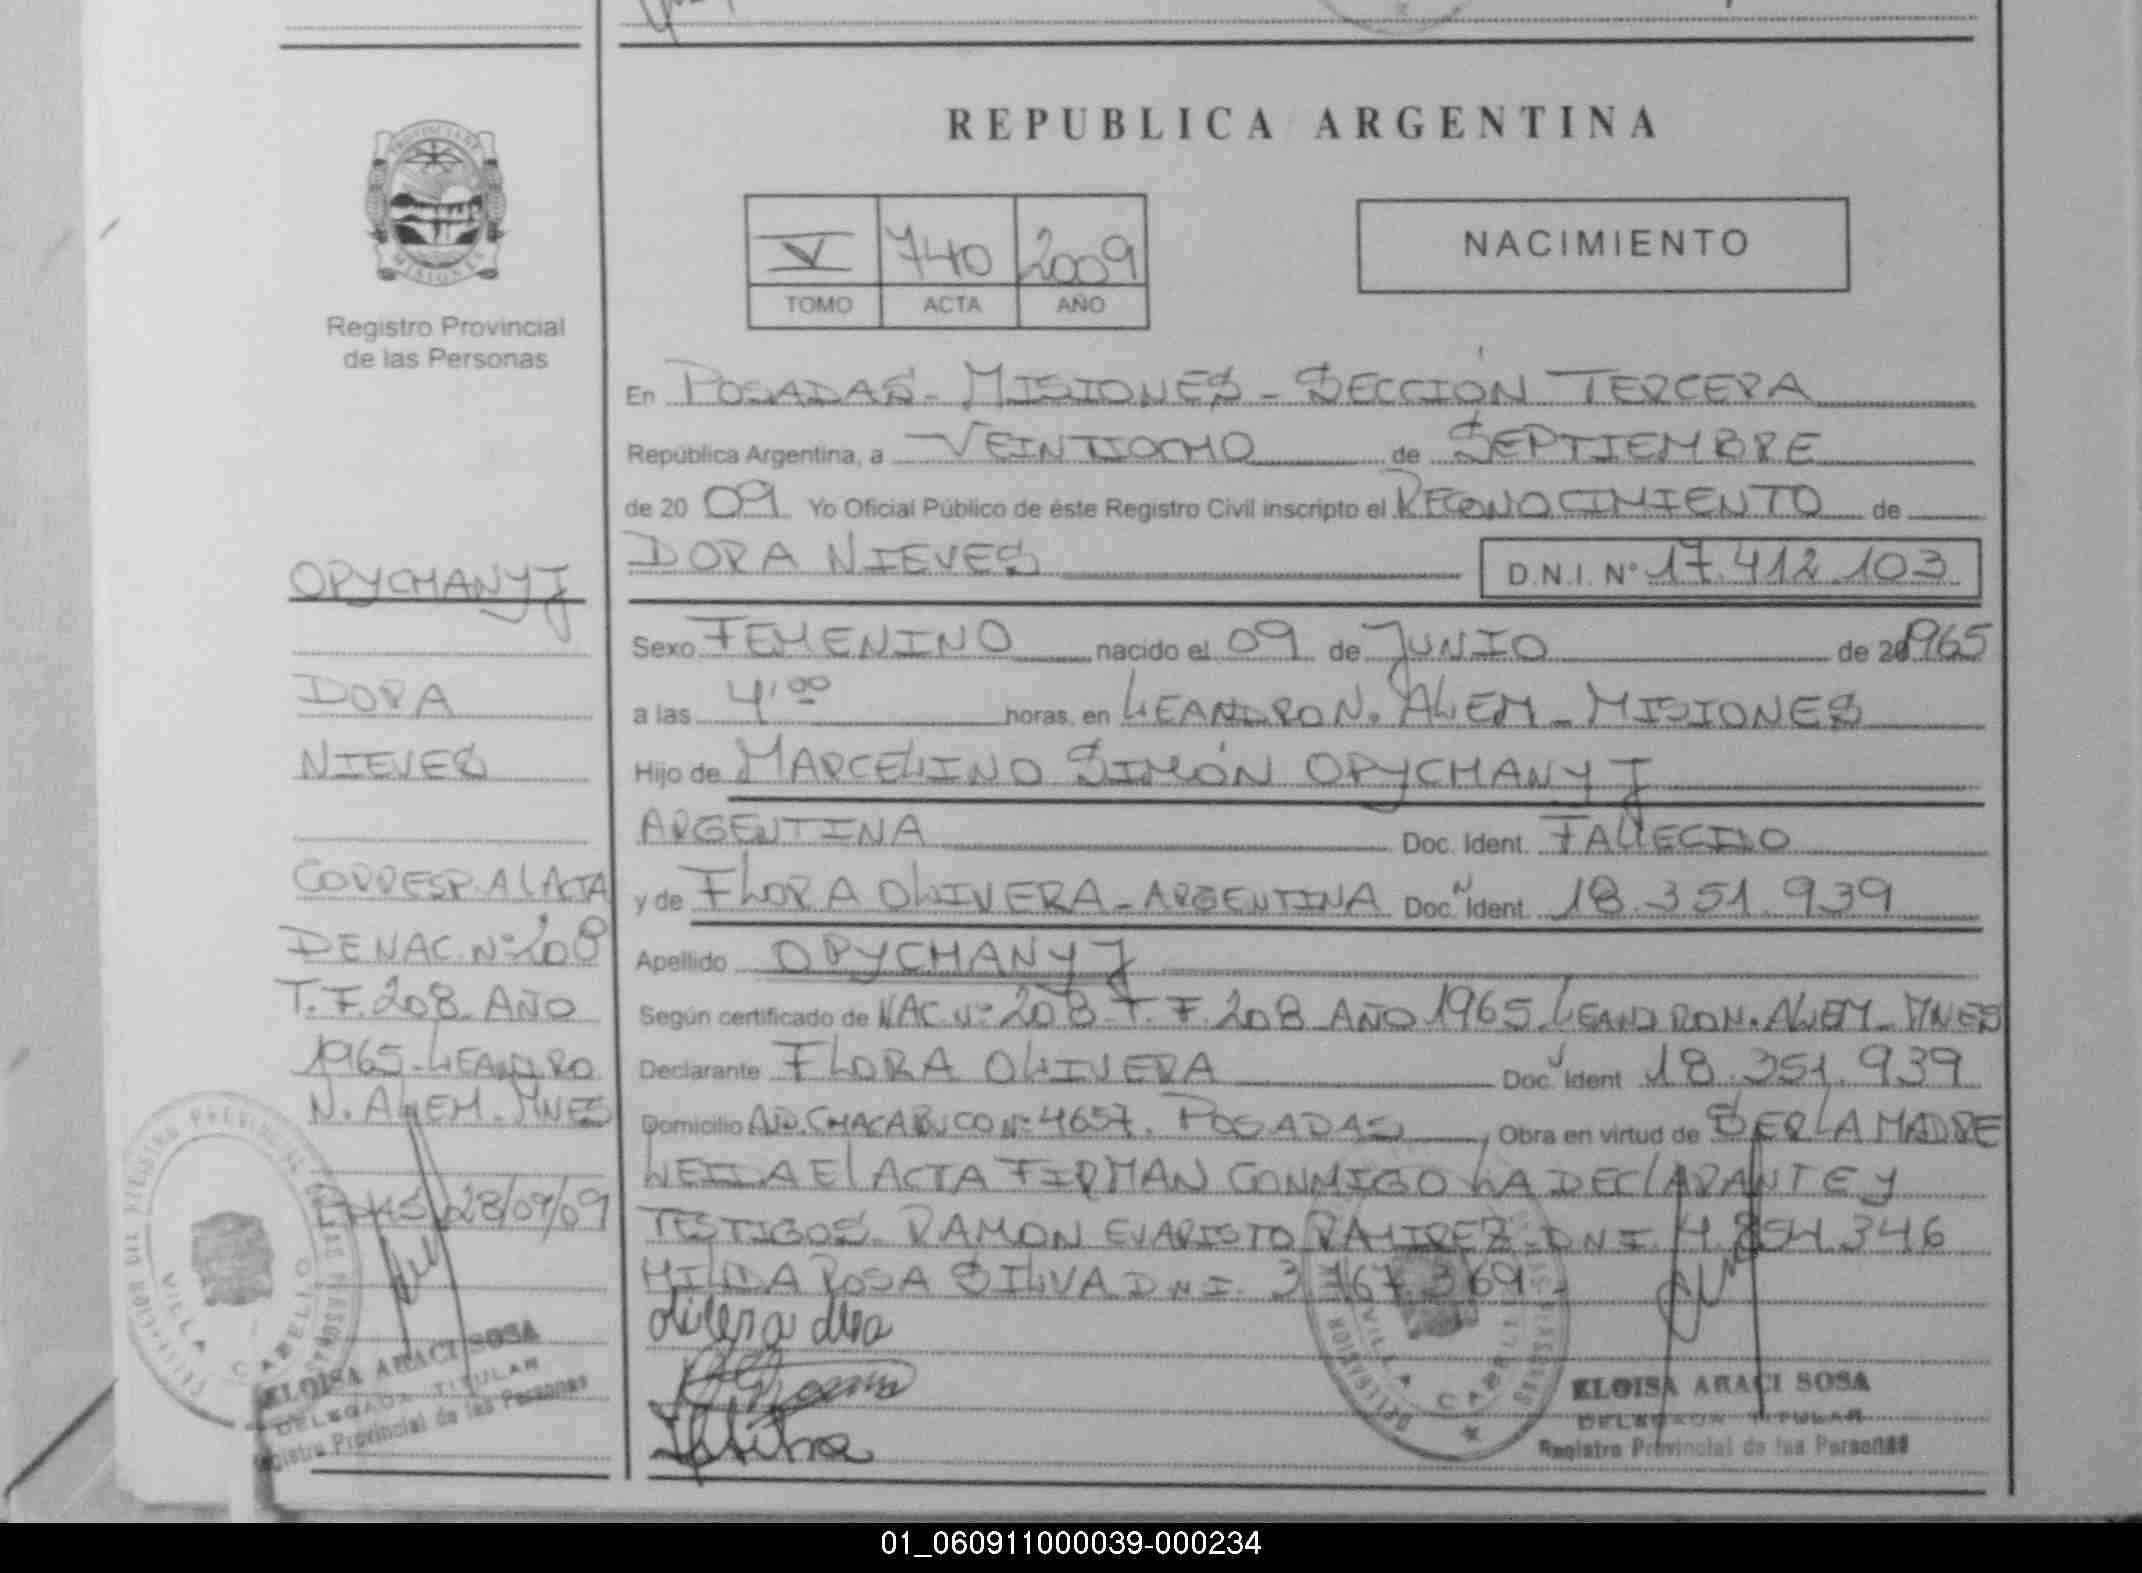 REPUBLICA ARGENTINA
PROVINCIA DE MISIONES
Registro Provincial
de las Personas
V 740 2009
TOMO ACTA AÑO
NACIMIENTO
En POSADAS - MISIONES - SECCIÓN TERCERA
República Argentina, a VEINTIOCHO de SEPTIEMBRE
de 20 09 Yo Oficial Público de éste Registro Civil inscripto el RECONOCIMIENTO de
DORA NIEVES D.N.I. N° 17.412.103
Sexo FEMENINO nacido el 09 de JUNIO de 1965
a las 4,00 horas, en LEANDRO N. ALEM - MISIONES
Hijo de MARCELINO SIMÓN OPYCHANYJ
ARGENTINA Doc. Ident. FALLECIDO
y de FLORA OLIVERA - ARGENTINA Doc. Ident. 18.351.939
Apellido OPYCHANYJ
Según certificado de NAC. N° 208 - T. F. 208 AÑO 1965 LEANDRO N. ALEM - MNES
Declarante FLORA OLIVERA Doc. Ident 18.351.939
Domicilio AVD. CHACABUCO N° 4657. POSADAS, Obra en virtud de SER LA MADRE
LEIDA EL ACTA FIRMAN CONMIGO LA DECLARANTE Y
TESTIGOS. RAMON EVARISTO RAMIREZ - DNI 4.854.346
HILDA ROSA SILVA DNI. 3.767.369.
OPYCHANYJ
DORA
NIEVES
CORRESP. AL ACTA
DE NAC. N° 208
T. F. 208 AÑO
1965 - LEANDRO
N. ALEM - MNES
28/09/09
ELOISA ARACI SOSA
DELEGADA TITULAR
Registro Provincial de las Personas
VILLA CABELLO
ELOISA ARACI SOSA
DELEGADA TITULAR
Registro Provincial de las Personas
VILLA CABELLO
01_060911000039-000234